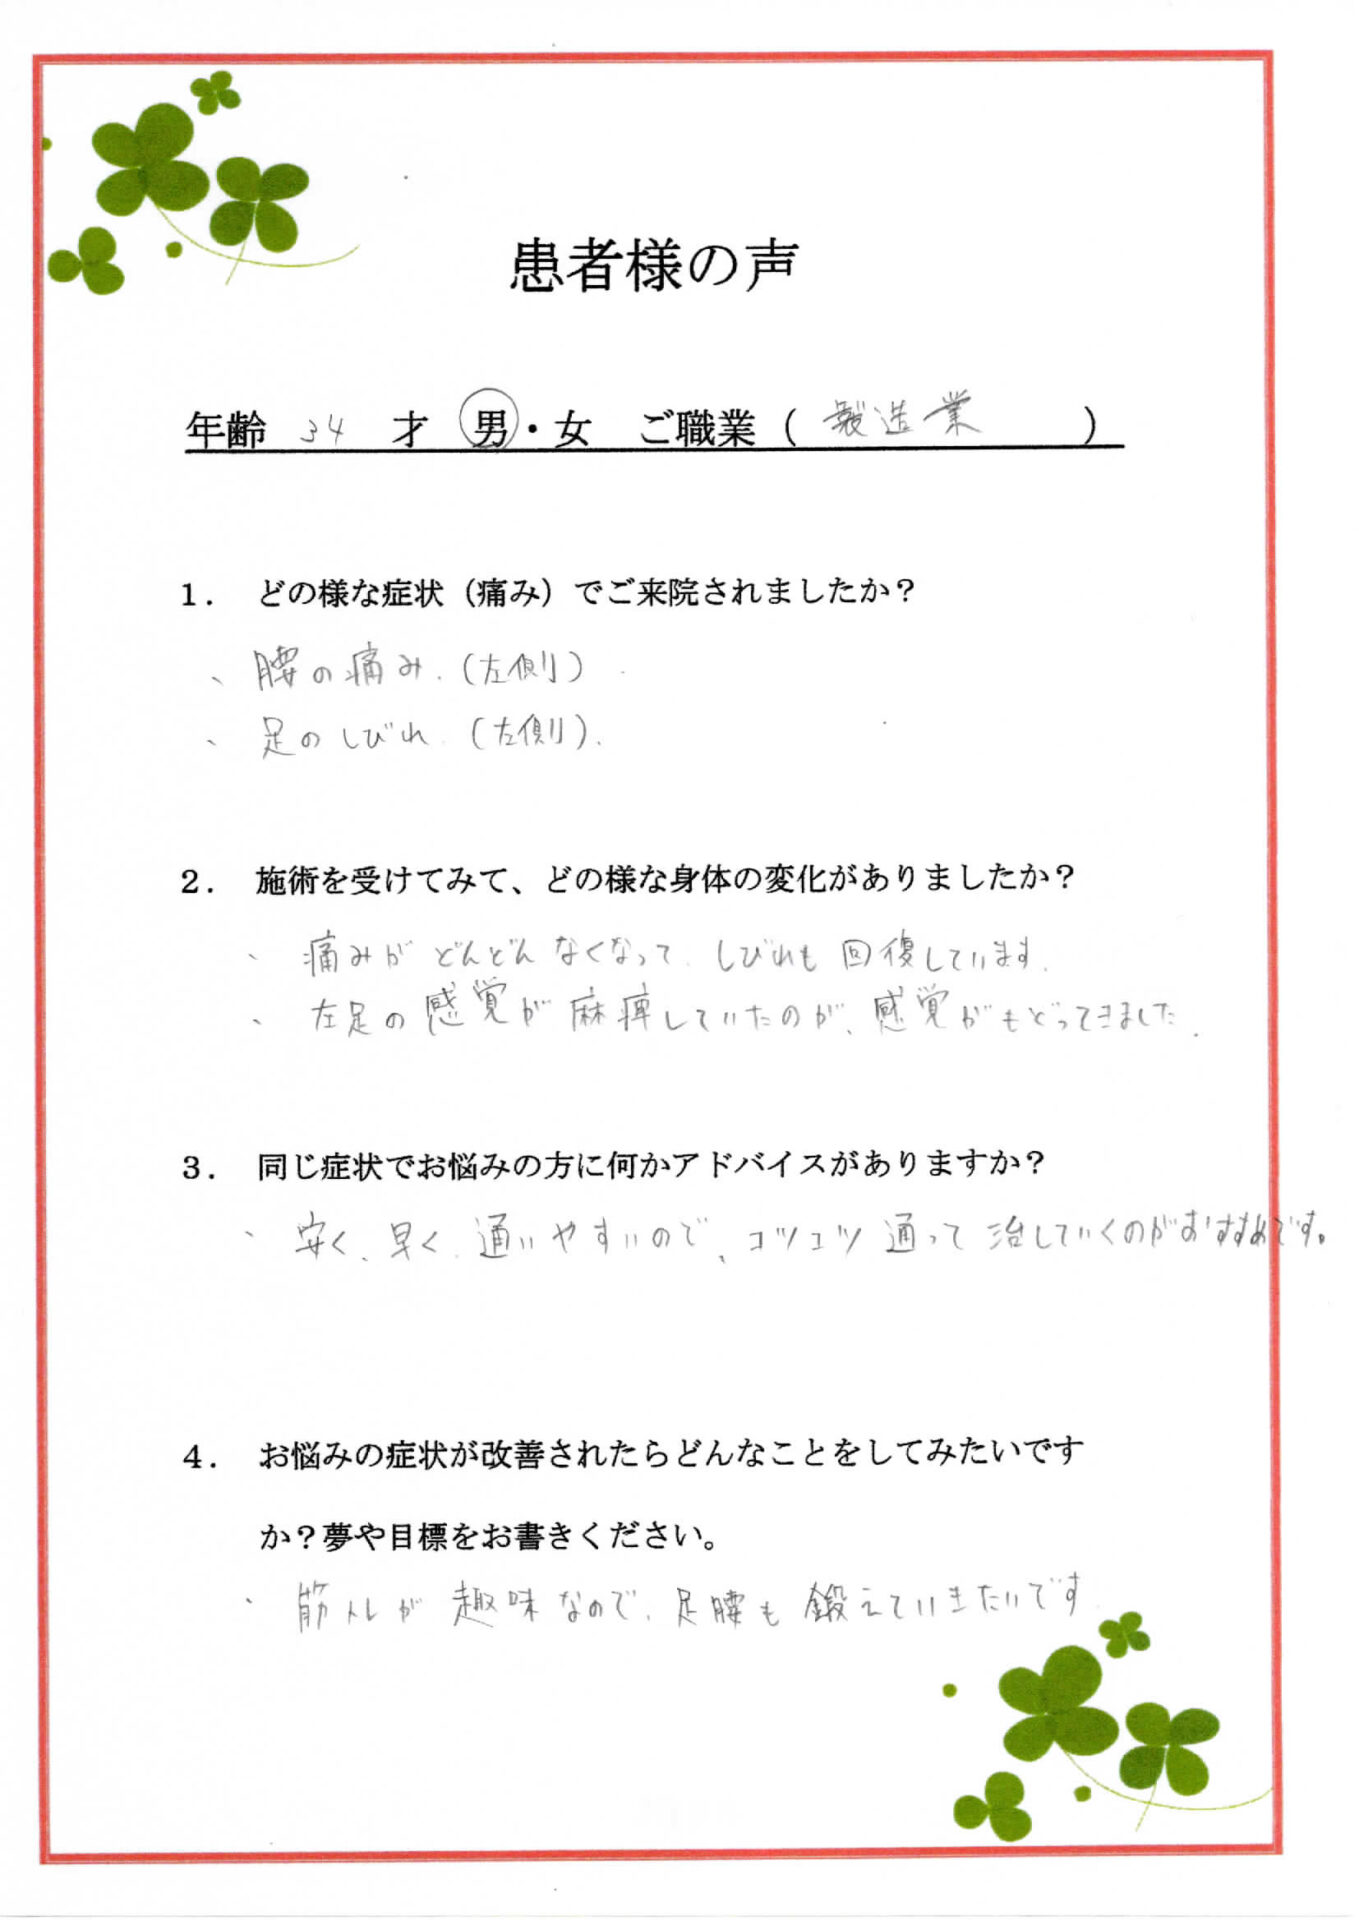 患者様の声
年齢 34 才 男・女 ご職業（ 製造業 ）
1. どの様な症状（痛み）でご来院されましたか？
、腰の痛み.（左側）.
、足のしびれ.（左側）.
2. 施術を受けてみて、どの様な身体の変化がありましたか？
、痛みがどんどんなくなって、しびれも回復しています.
、左足の感覚が麻痺していたのが、感覚がもどってきました.
3. 同じ症状でお悩みの方に何かアドバイスがありますか？
、安く、早く、通いやすいので、コツコツ通って治していくのがおすすめです。
4. お悩みの症状が改善されたらどんなことをしてみたいです
か？夢や目標をお書きください。
、筋トレが趣味なので、足腰も鍛えていきたいです.